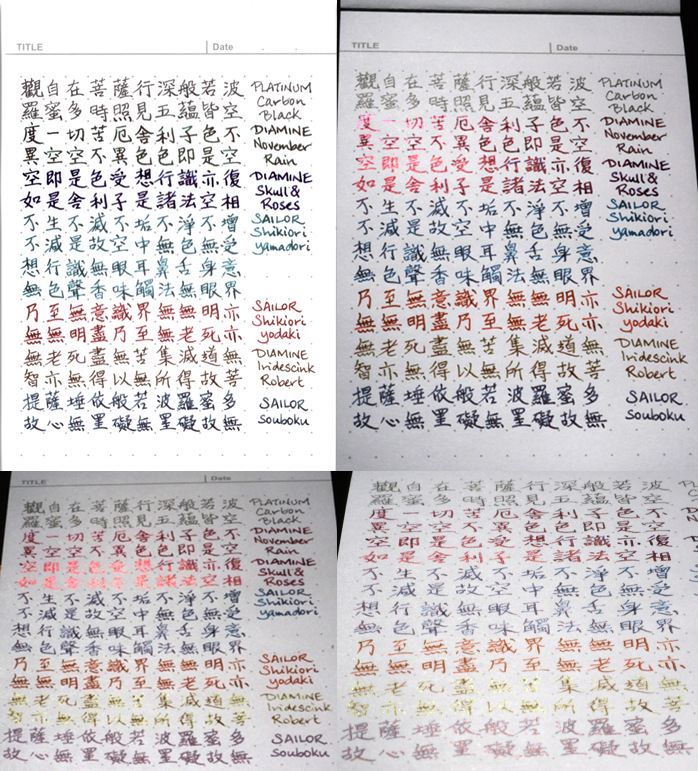 TITLE
Date
觀自在菩薩行深般若波
羅蜜多時照見五蘊皆空
度一切苦厄舍利子色不
異空空不異色色即是空
空即是色受想行識亦復
如是舍利子是諸法空相
不生不滅不垢不淨不增
不減是故空中無色無受
想行識無眼耳鼻舌身意
無色聲香味觸法無眼界
乃至無意識界無無明亦
無無明盡乃至無老死亦
無老死盡無苦集滅道無
智亦無得以無所得故菩
提薩埵依般若波羅蜜多
故心無罣礙無罣礙故無
PLATINUM
Carbon
Black
DIAMINE
November
Rain
DIAMINE
Skull &
Roses
SAILOR
Shikiori
yamadori
SAILOR
Shikiori
yodaki
DIAMINE
Iridescink
Robert
SAILOR
Souboku
TITLE
Date
觀自在菩薩行深般若波
羅蜜多時照見五蘊皆空
度一切苦厄舍利子色不
異空空不異色色即是空
空即是色受想行識亦復
如是舍利子是諸法空相
不生不滅不垢不淨不增
不減是故空中無色無受
想行識無眼耳鼻舌身意
無色聲香味觸法無眼界
乃至無意識界無無明亦
無無明盡乃至無老死亦
無老死盡無苦集滅道無
智亦無得以無所得故菩
提薩埵依般若波羅蜜多
故心無罣礙無罣礙故無
PLATINUM
Carbon
Black
DIAMINE
November
Rain
DIAMINE
Skull &
Roses
SAILOR
Shikiori
yamadori
SAILOR
Shikiori
yodaki
DIAMINE
Iridescink
Robert
SAILOR
Souboku
TITLE
Date
觀自在菩薩行深般若波
羅蜜多時照見五蘊皆空
度一切苦厄舍利子色不
異空空不異色色即是空
空即是色受想行識亦復
如是舍利子是諸法空相
不生不滅不垢不淨不增
不減是故空中無色無受
想行識無眼耳鼻舌身意
無色聲香味觸法無眼界
乃至無意識界無無明亦
無無明盡乃至無老死亦
無老死盡無苦集滅道無
智亦無得以無所得故菩
提薩埵依般若波羅蜜多
故心無罣礙無罣礙故無
PLATINUM
Carbon
Black
DIAMINE
November
Rain
DIAMINE
Skull &
Roses
SAILOR
Shikiori
yamadori
SAILOR
Shikiori
yodaki
DIAMINE
Iridescink
Robert
SAILOR
Souboku
觀自在菩薩行深般若波
羅蜜多時照見五蘊皆空
度一切苦厄舍利子色不
異空空不異色色即是空
空即是色受想行識亦復
如是舍利子是諸法空相
不生不滅不垢不淨不增
不減是故空中無色無受
想行識無眼耳鼻舌身意
無色聲香味觸法無眼界
乃至無意識界無無明亦
無無明盡乃至無老死亦
無老死盡無苦集滅道無
智亦無得以無所得故菩
提薩埵依般若波羅蜜多
故心無罣礙無罣礙故無